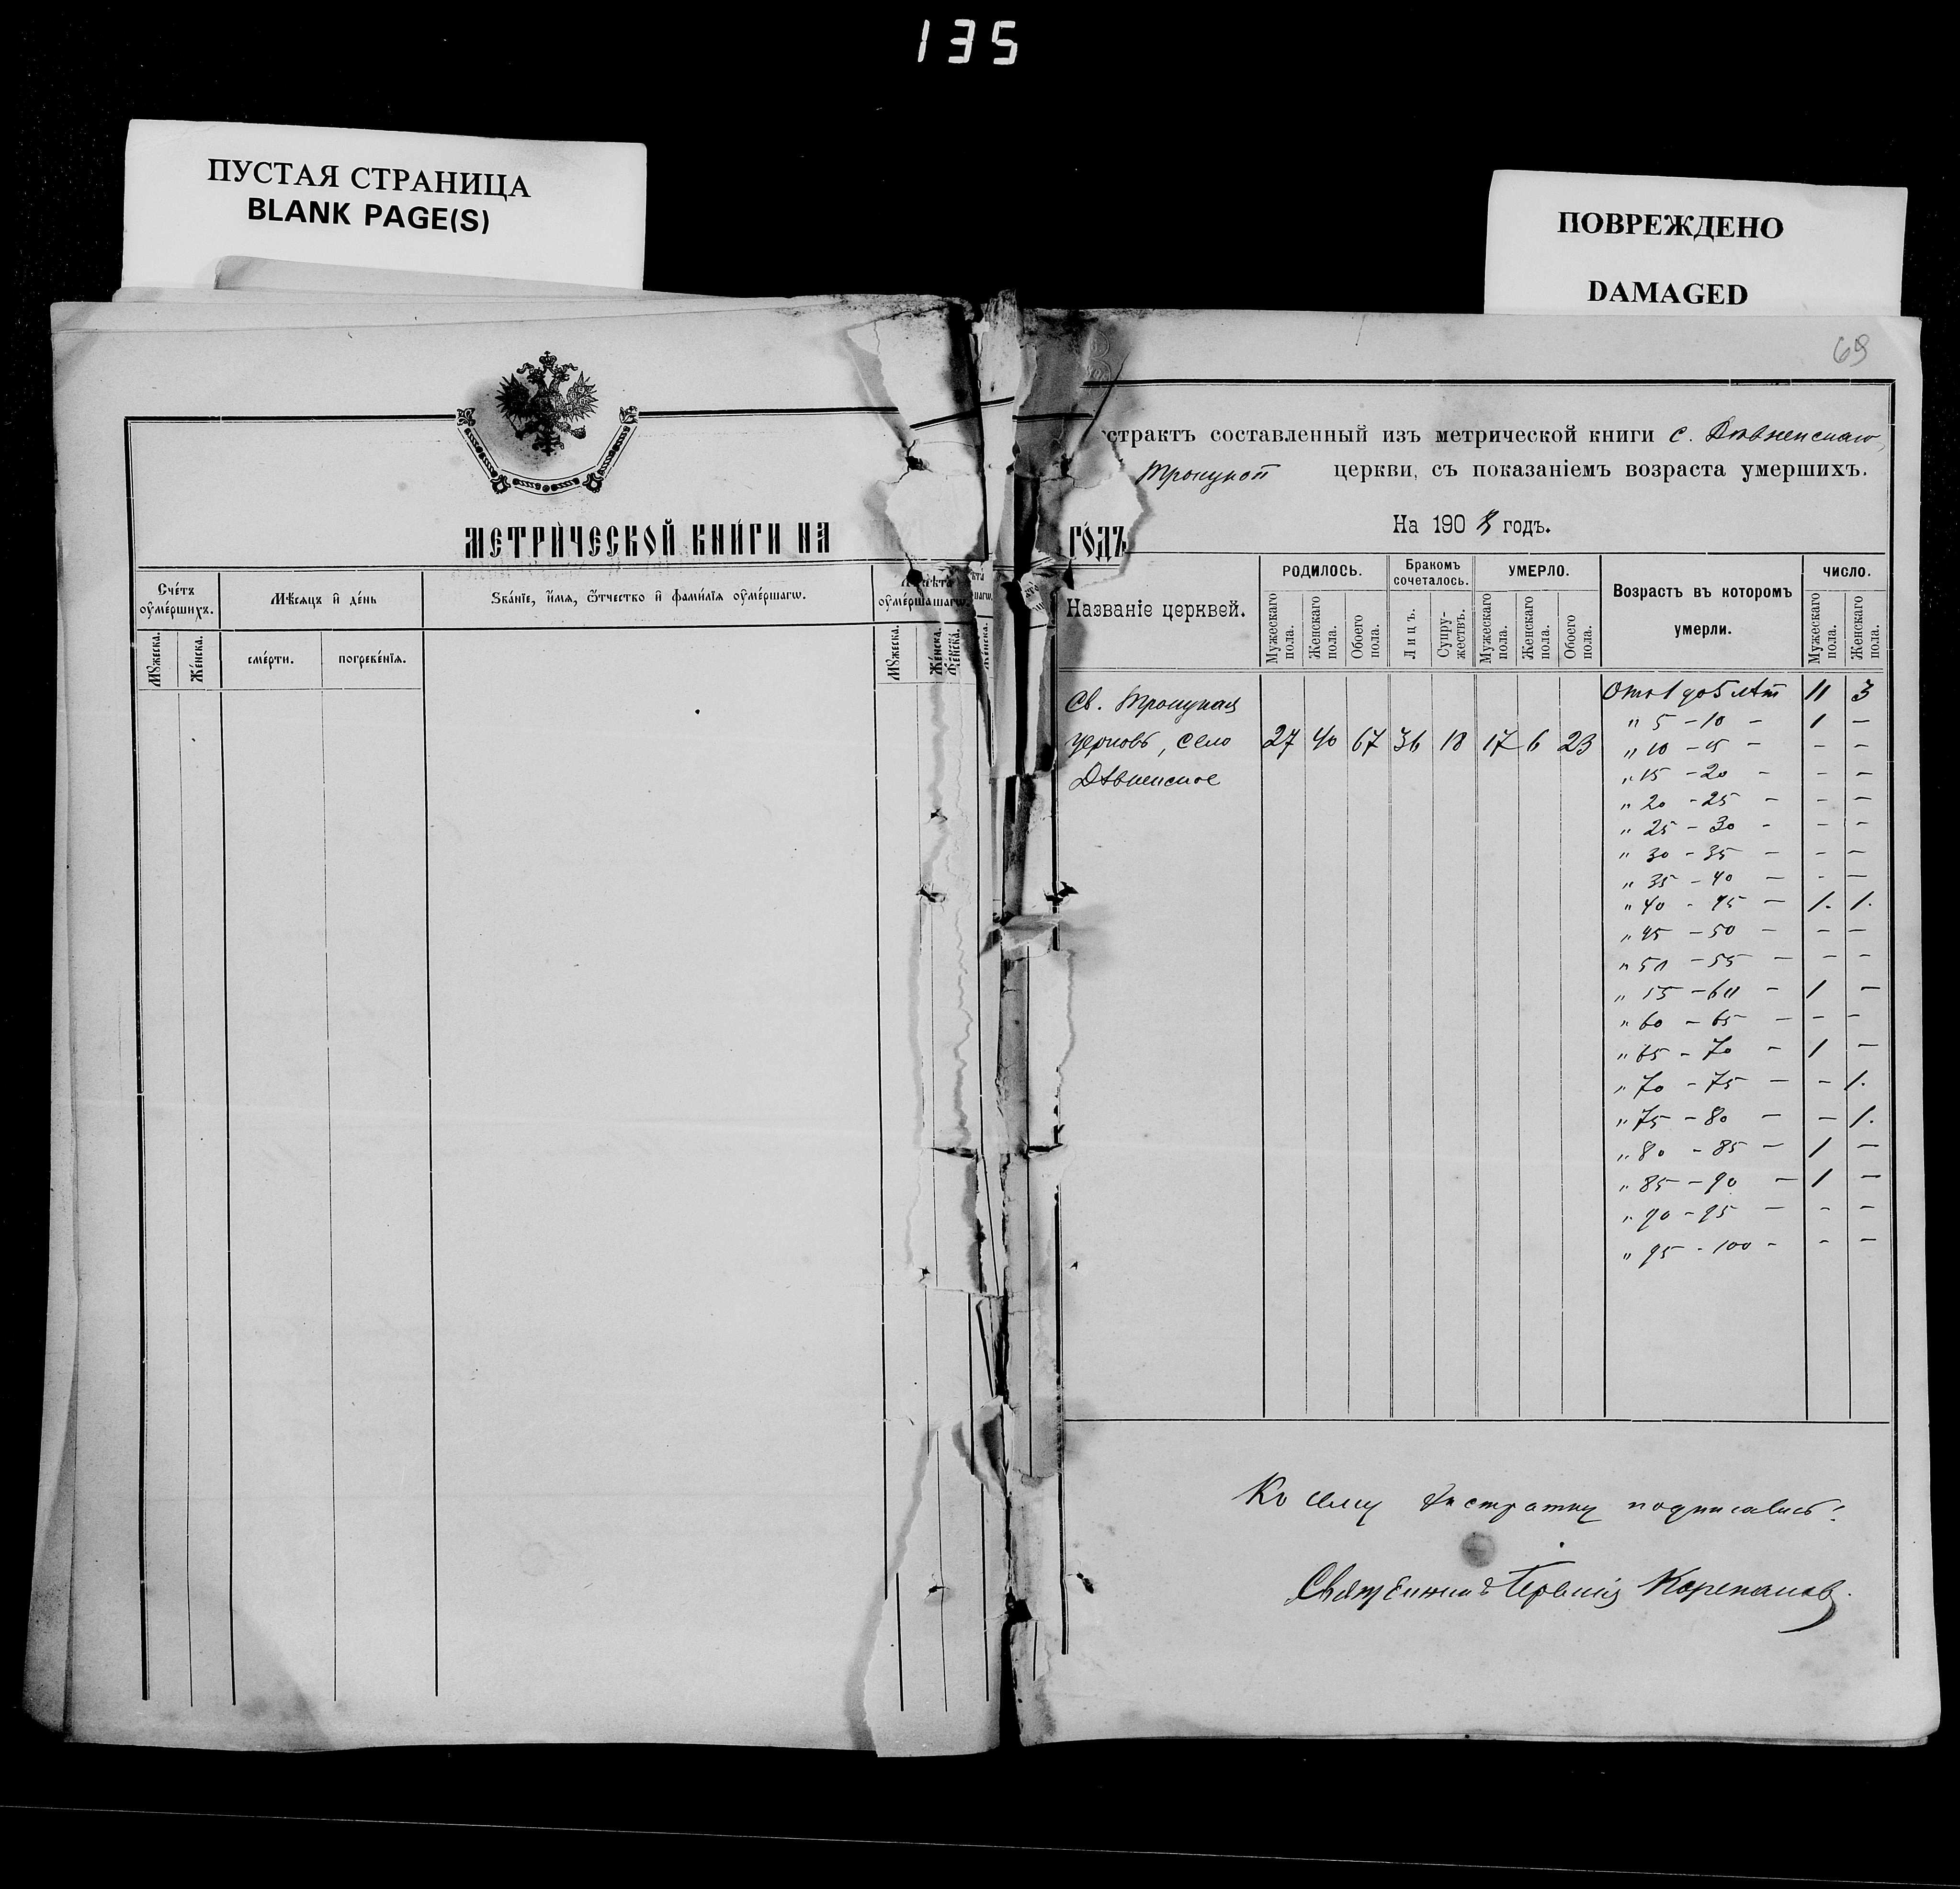 135
ПУСТАЯ СТРАНИЦА
BLANK PAGE(S)
ПОВРЕЖДЕНО
DAMAGED
69
МЕТРИЧЕСКОЙ КНИГИ НА ГОДЪ
Счетъ оумершихъ.
Мѣсяцъ и день
Званіе, имя, отчество и фамилія оумершагѡ.
Лѣта оумершагѡ.
Мужеска.
Женска.
смерти.
погребенія.
Мужеска.
Женска.
страктъ составленный изъ метрической книги с. Дѣвненскаго
Троицкой церкви, съ показаніемъ возраста умершихъ.
На 1908 годъ.
Названіе церквей.
РОДИЛОСЬ.
Бракомъ сочеталось.
УМЕРЛО.
Возрастъ въ которомъ умерли.
ЧИСЛО.
Мужескаго пола.
Женскаго пола.
Обоего пола.
Лицъ.
Супружествъ.
Мужескаго пола.
Женскаго пола.
Обоего пола.
Мужескаго пола.
Женскаго пола.
Св. Троицкая
церковь, село 27 40 67 36 18 17 6 23
Дѣвненское
Отъ 1 до 5 лѣт 11 3
" 5 - 10 - 1 -
" 10 - 15 - - -
" 15 - 20 - - -
" 20 - 25 - - -
" 25 - 30 - - -
" 30 - 35 - - -
" 35 - 40 - - -
" 40 - 45 - 1. 1.
" 45 - 50 - - -
" 50 - 55 - - -
" 55 - 60 - 1 -
" 60 - 65 - - -
" 65 - 70 - 1 -
" 70 - 75 - - 1.
" 75 - 80 - - 1.
" 80 - 85 - 1 -
" 85 - 90 - 1 -
" 90 - 95 - - -
" 95 - 100 - - -
Ко сему экстракту подписались:
Священникъ Корепановъ.